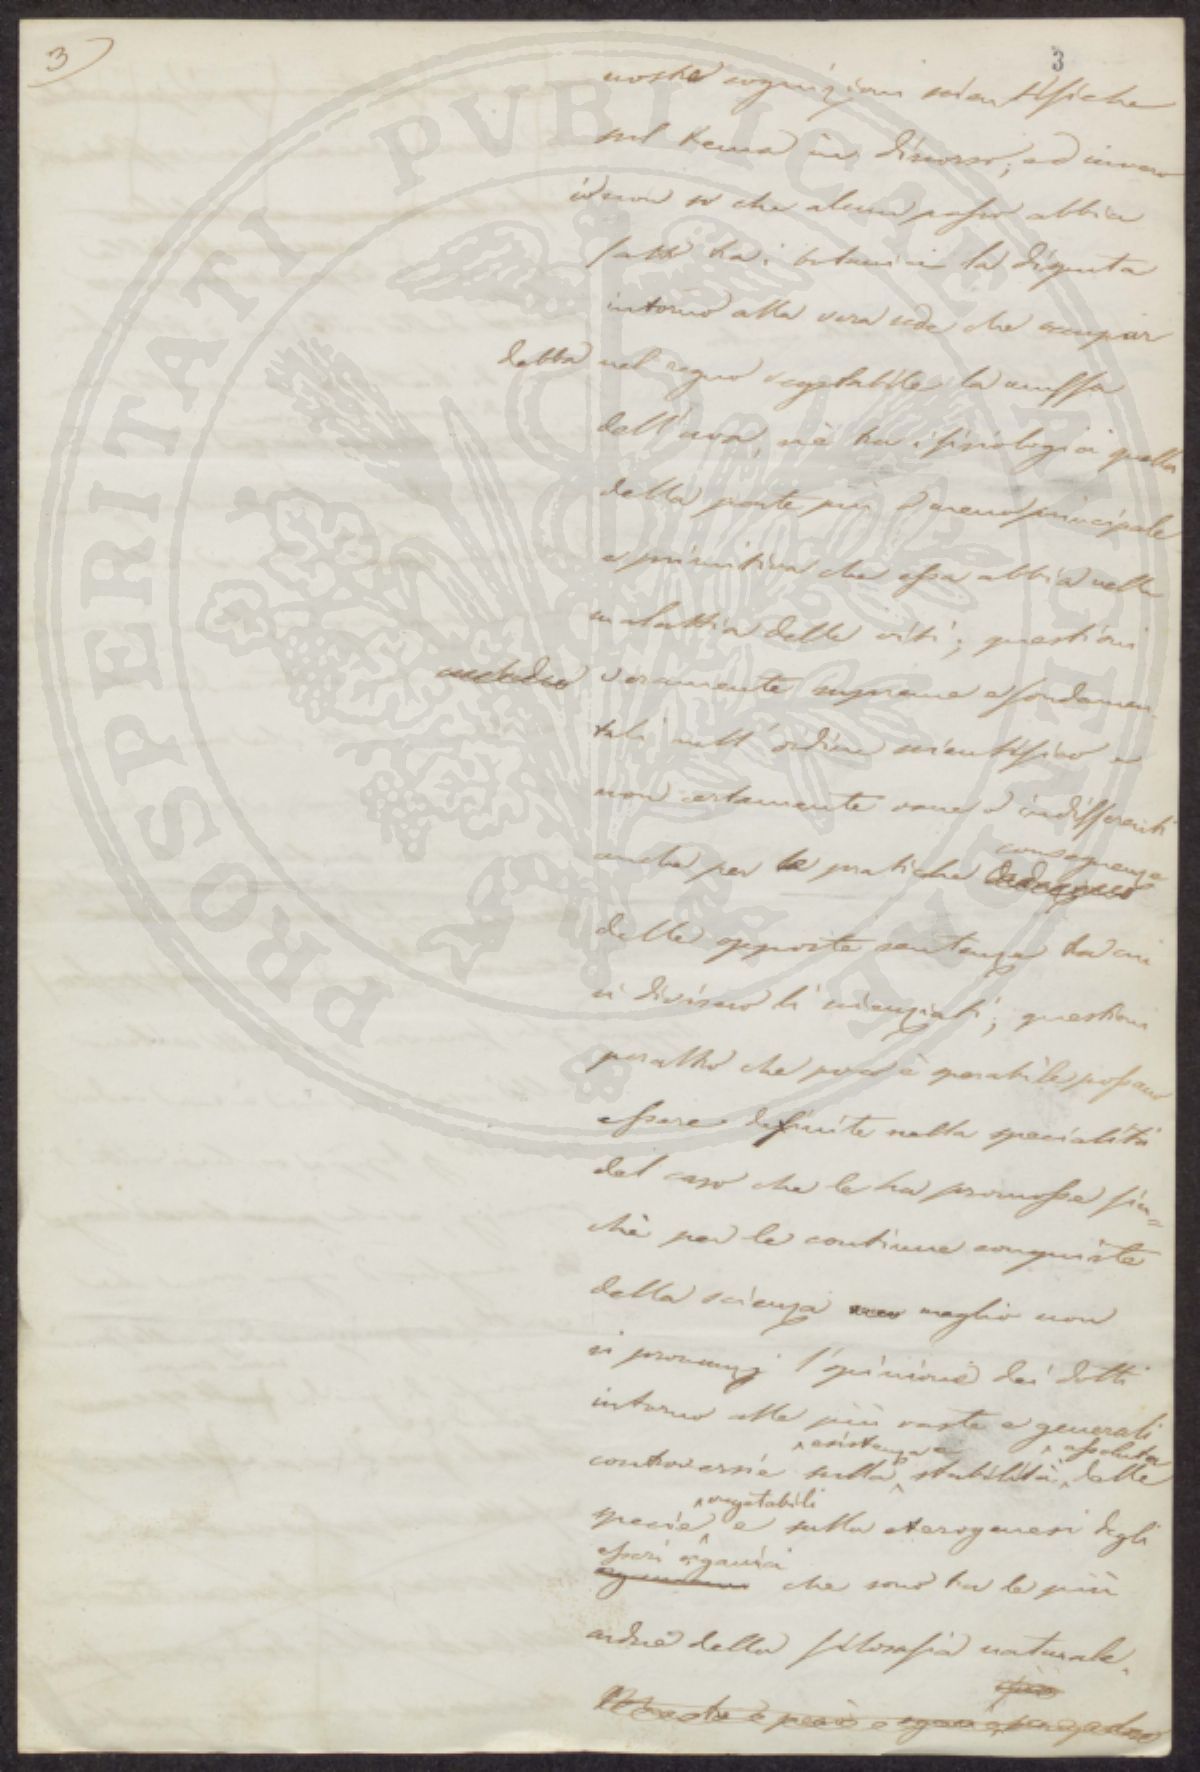 3)
3
nostre cognizioni scientifiche
sul tema in discorso; ed invero
io non so che alcun passo abbia
fatto tra i botanici la disputa
intorno alla vera sede che occupar
debba nel regno vegetabile la muffa
dell'uva, nè tra i fisiologici quella
della parte più o meno principale
e primitiva che essa abbia nella
malattia delle viti; questioni
veramente supreme e fondamen-
tali nell'ordine scientifico e
non certamente vane o indifferenti
anche per le pratiche conseguenze
delle opposte sentenze tra cui
si divisero li scienziati; questioni
peraltro che poco è sperabile possano
essere definite nella specialità
del caso che le ha promosse fin=
chè per le continue conquiste
della scienza meglio non
si pronunzj l'opinione dei dotti
intorno alle più vaste e generali
controversie sulla esistenza e stabilità assoluta delle
specie vegetabili e sulla eterogenesi degli
esseri organici che sono tra le più
ardue della filosofia naturale.
PROSPERITATI PVBLICAE AVGENDAE